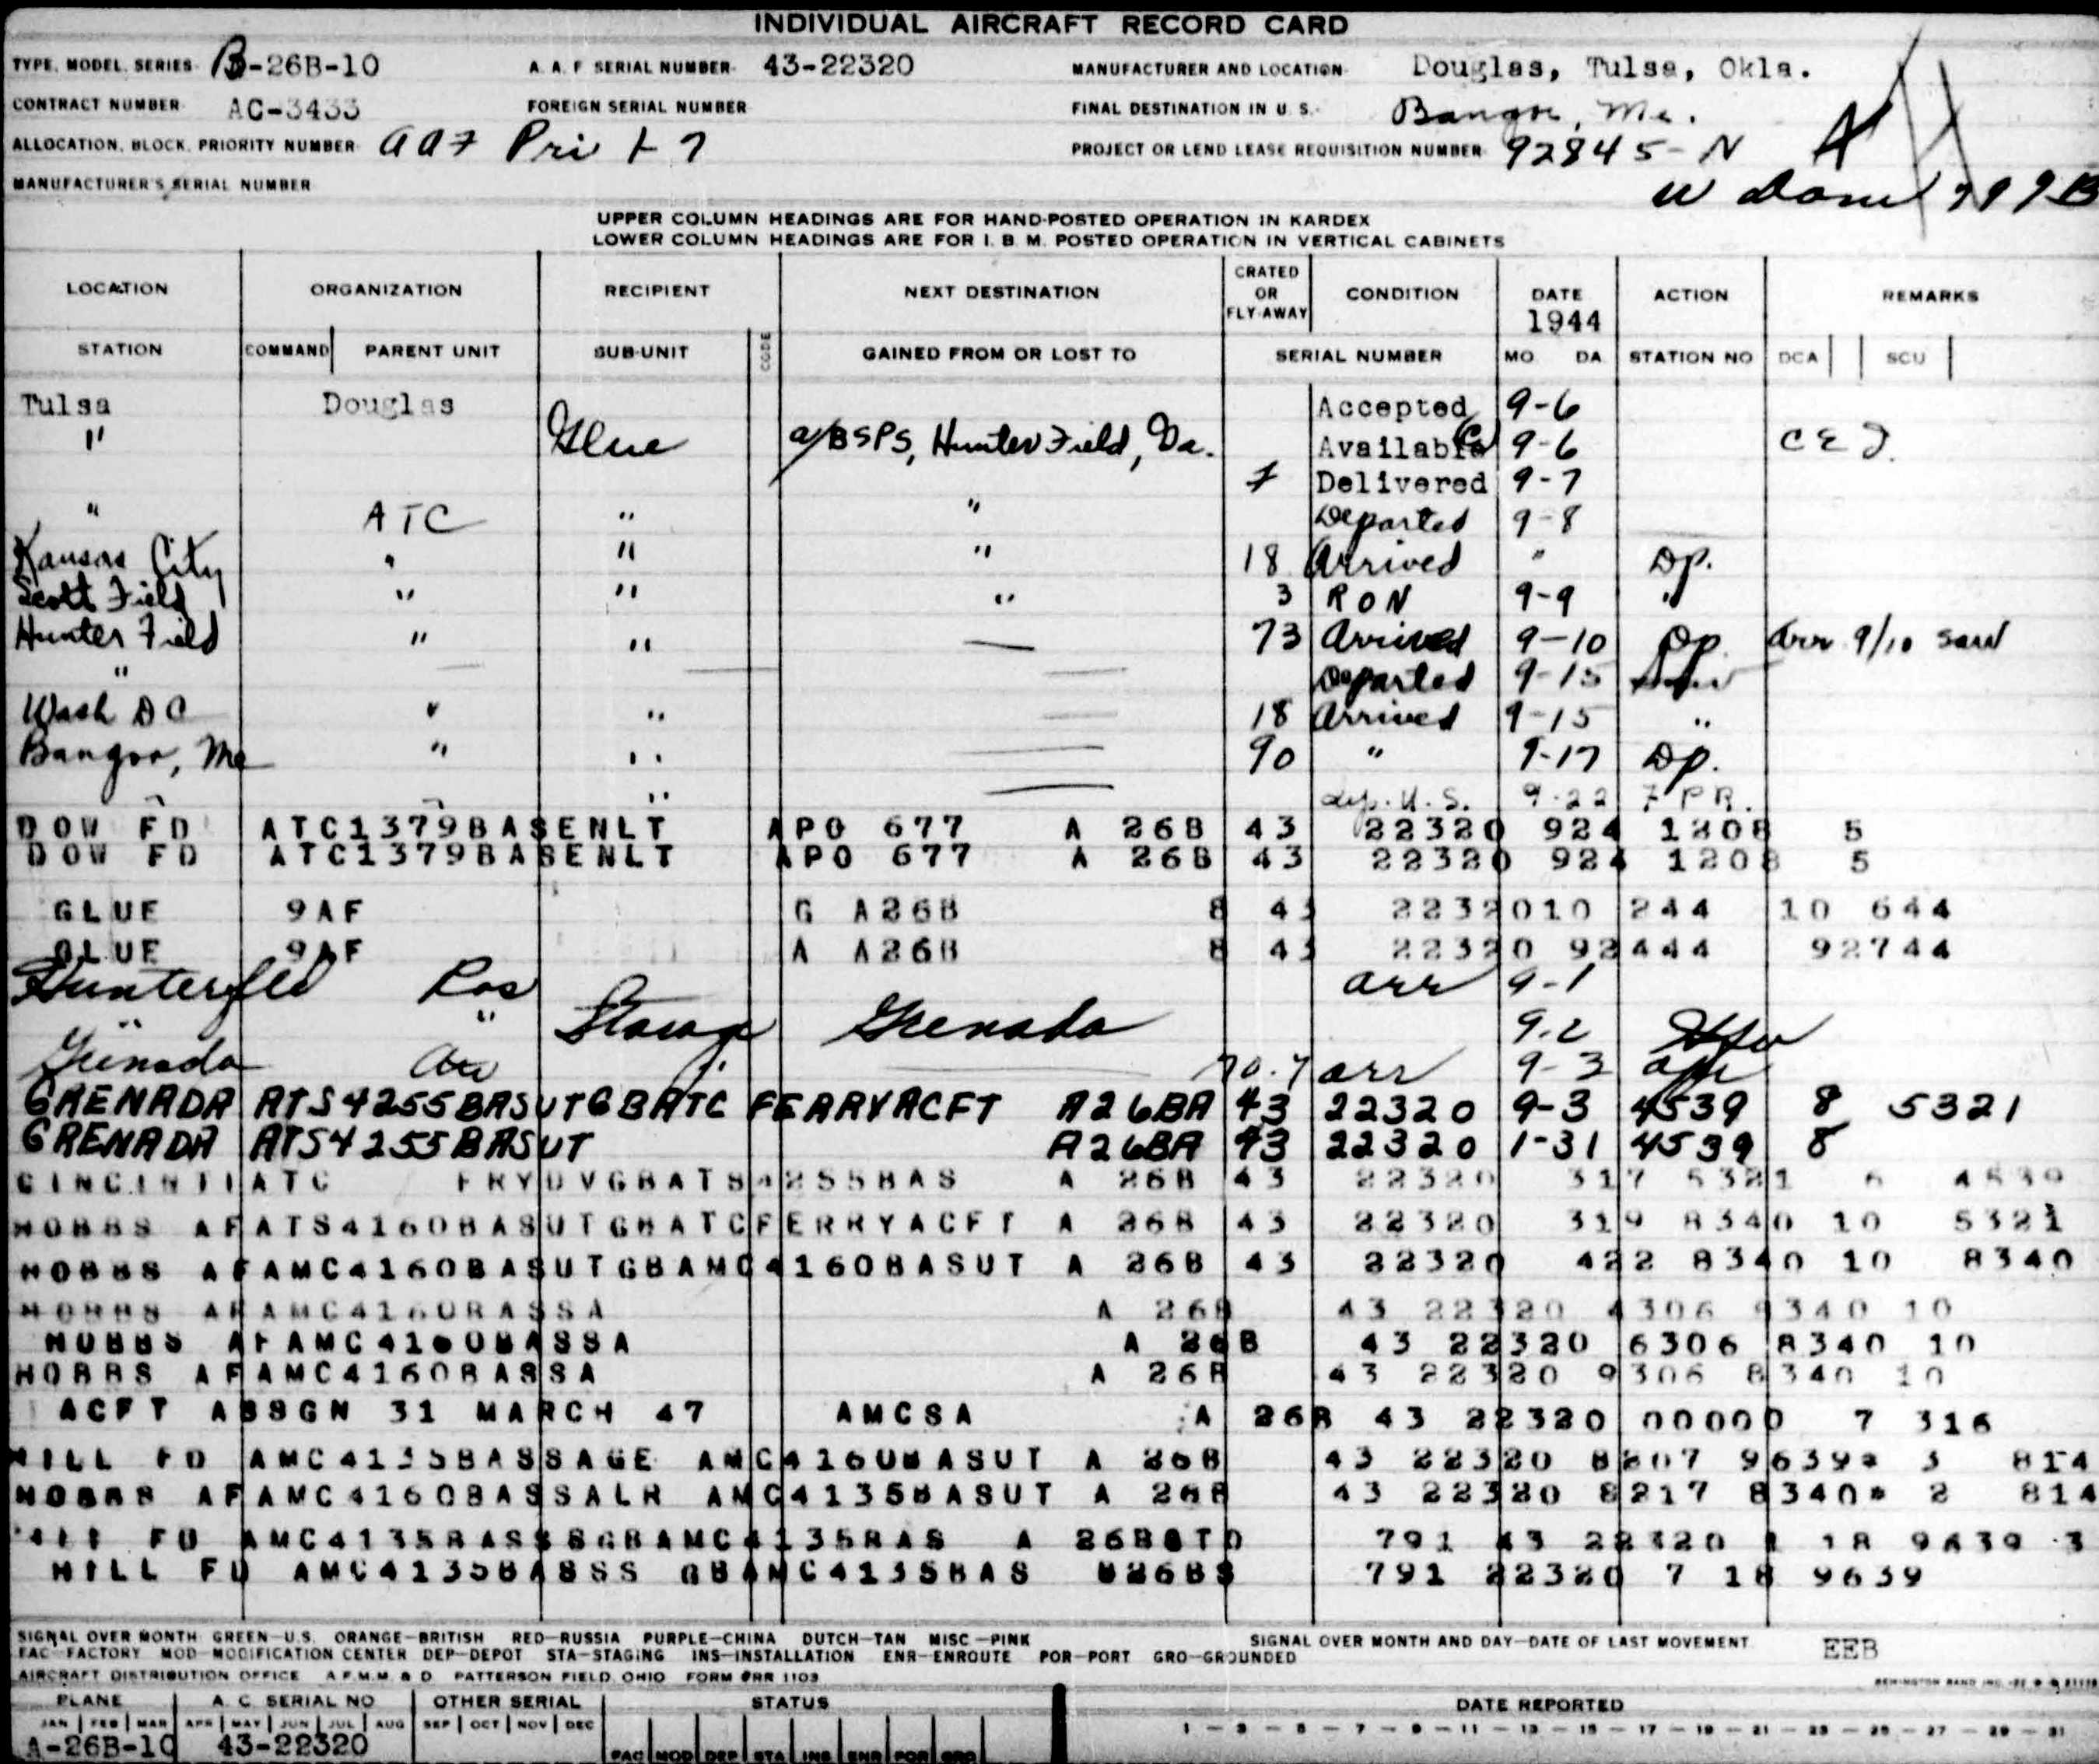 INDIVIDUAL AIRCRAFT RECORD CARD
TYPE, MODEL, SERIES B-26B-10 A. A. F SERIAL NUMBER 43-22320 MANUFACTURER AND LOCATION Douglas, Tulsa, Okla.
CONTRACT NUMBER AC-3433 FOREIGN SERIAL NUMBER FINAL DESTINATION IN U. S. Bangor, Me.
ALLOCATION, BLOCK, PRIORITY NUMBER AAF Pri 1-7 PROJECT OR LEND LEASE REQUISITION NUMBER 92845-N A
MANUFACTURER'S SERIAL NUMBER W 799B
UPPER COLUMN HEADINGS ARE FOR HAND-POSTED OPERATION IN KARDEX
LOWER COLUMN HEADINGS ARE FOR I. B. M. POSTED OPERATION IN VERTICAL CABINETS
LOCATION ORGANIZATION RECIPIENT NEXT DESTINATION CRATED OR FLY-AWAY CONDITION DATE 1944 ACTION REMARKS
STATION COMMAND PARENT UNIT SUB-UNIT CODE GAINED FROM OR LOST TO SERIAL NUMBER MO. DA. STATION NO DCA SCU
Tulsa Douglas Accepted 9-6
" Glue a/BSPS, Hunter Field, Ga. Available 9-6 CEJ.
7 Delivered 9-7
" ATC " " Departed 9-8
Kansas City " " " 18 Arrived " Dp.
Scott Field " " " 3 RON 9-9 "
Hunter Field " " — 73 Arrived 9-10 Dp. Arr 9/10 saw
" Departed 9-15
Wash DC " " — 18 Arrived 9-15 "
Bangor, Me " " — 90 " 9-17 Dp.
" " " — dep. U.S. 9-22 7 PR.
DOW FD ATC1379BASENLT APO 677 A 26B 43 22320 924 1208 5
DOW FD ATC1379BASENLT APO 677 A 26B 43 22320 924 1208 5
GLUE 9AF G A26B 8 43 2232010 244 10 644
GLUE 9AF A A26B 8 43 22320 92444 92744
Hunterfld arr 9-1
" " Storage Grenada 9-2
Grenada 70.7 arr 9-3
GRENADA ATS4255BASUTGBATC FERRYACFT A26BA 43 22320 9-3 4539 8 5321
GRENADA ATS4255BASUT A26BA 43 22320 1-31 4539 8
CINCINTIATC FRYDVGBATS4255BAS A 26B 43 22320 317 5321 6 4539
HOBBS AFATS4160BASUTGBATCFERRYACFT A 26B 43 22320 319 8340 10 5321
HOBBS AFAMC4160BASUTGBAMC4160BASUT A 26B 43 22320 422 8340 10 8340
HOBBS AFAMC4160BASSA A 26B 43 22320 4306 8340 10
HOBBS AFAMC4160BASSA A 26B 43 22320 6306 8340 10
HOBBS AFAMC4160BASSA A 26B 43 22320 9306 8340 10
ACFT ASSGN 31 MARCH 47 AMCSA A 26B 43 22320 00000 7 316
HILL FD AMC4135BASSAGE AMC4160BASUT A 26B 43 22320 8207 9639* 3 814
HOBBS AFAMC4160BASSALR AMC4135BASUT A 26B 43 22320 8217 8340* 2 814
HILL FD AMC4135BASSSGBAMC4135BAS A 26B 791 43 22320 18 9639 3
HILL FD AMC4135BASSS GBAMC4135BAS B26BS 791 22320 7 18 9639
SIGNAL OVER MONTH GREEN—U.S. ORANGE—BRITISH RED—RUSSIA PURPLE—CHINA DUTCH—TAN MISC—PINK SIGNAL OVER MONTH AND DAY—DATE OF LAST MOVEMENT EEB
FAC—FACTORY MOD—MODIFICATION CENTER DEP—DEPOT STA—STAGING INS—INSTALLATION ENR—ENROUTE POR—PORT GRO—GROUNDED
AIRCRAFT DISTRIBUTION OFFICE A.F.M.M. & D. PATTERSON FIELD, OHIO FORM #RR 1103
PLANE A. C. SERIAL NO OTHER SERIAL STATUS DATE REPORTED
JAN FEB MAR APR MAY JUN JUL AUG SEP OCT NOV DEC 1 — 3 — 5 — 7 — 9 — 11 — 13 — 15 — 17 — 19 — 21 — 23 — 25 — 27 — 29 — 31
A-26B-10 43-22320 FAC MOD DEP STA INS ENR POR GRO